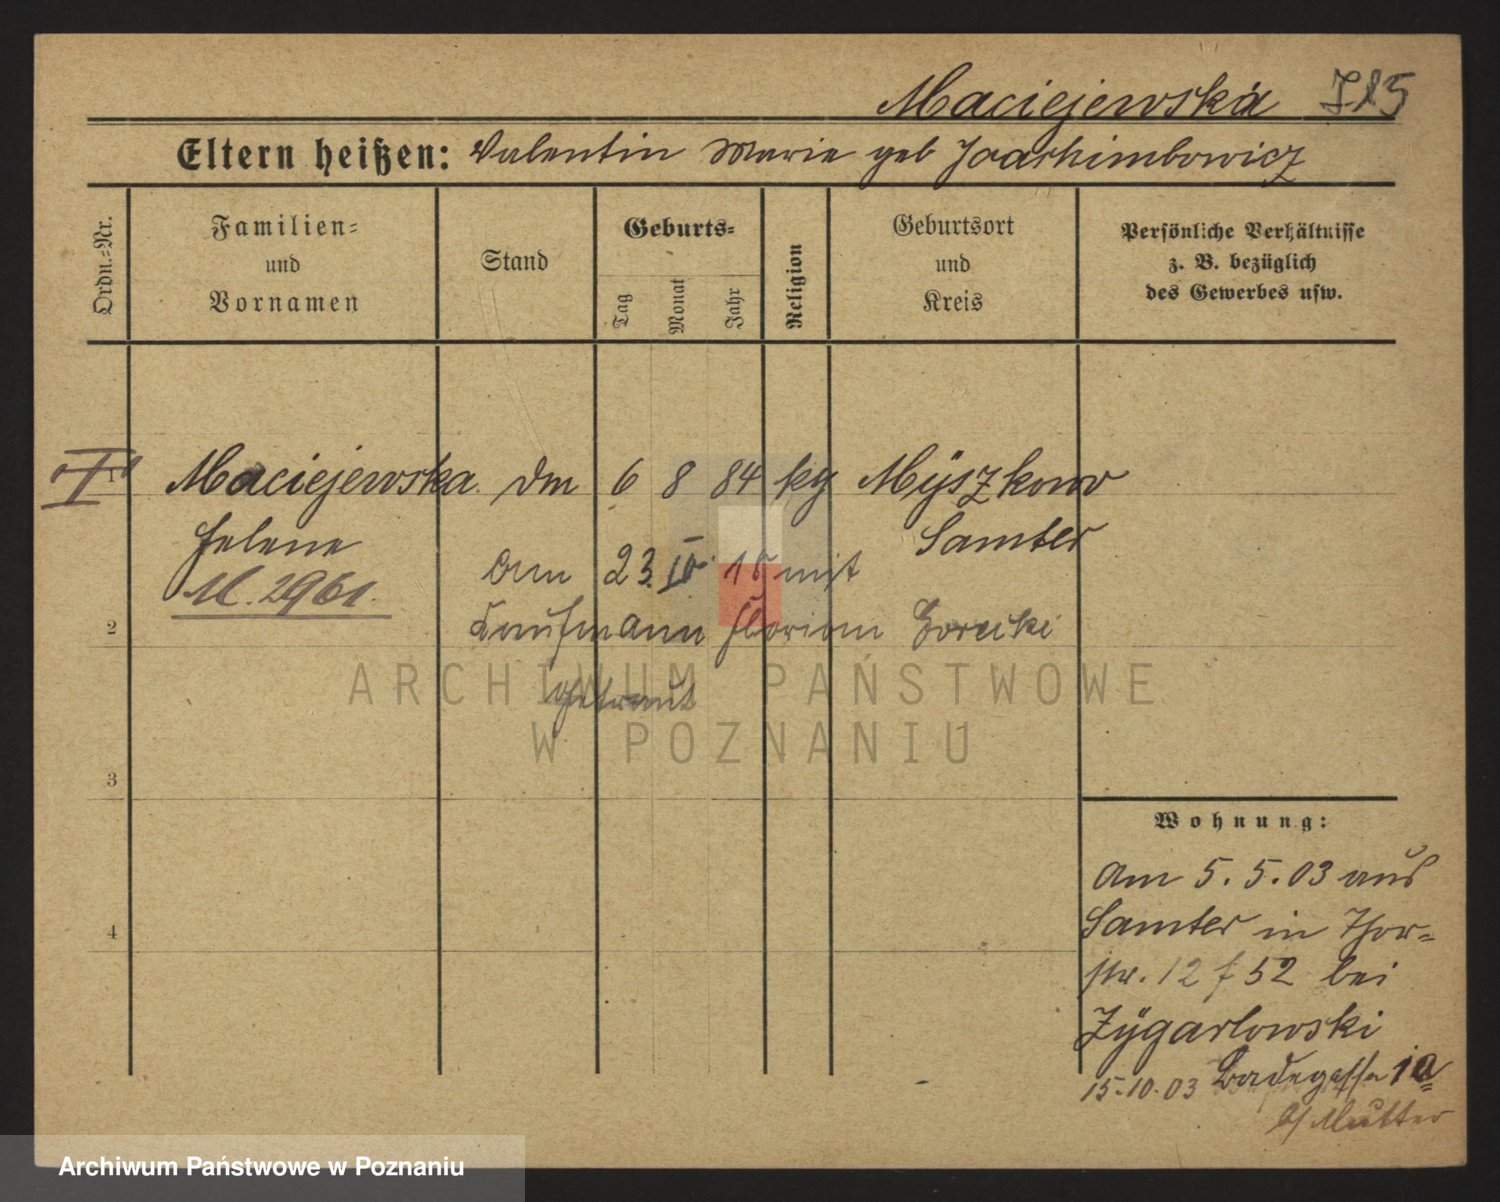 Maciejewska
Eltern heißen: Valentin Marie geb Joachimbowicz
Ordn.-Nr.
Familien-
und
Vornamen
Stand
Geburts-
Tag
Monat
Jahr
Religion
Geburtsort
und
Kreis
Persönliche Verhältnisse
z. B. bezüglich
des Gewerbes usw.
1 Maciejewska 6 8 84 kg Mÿszkowo
Helene Samter
M. 2961.
am 23. IV 15 mit
2
Kaufmann Florian Gorecki
getraut
ARCHIWUM PAŃSTWOWE
W POZNANIU
3
4
Wohnung:
am 5. 5. 03 aus
Samter in Thor-
str. 12 f 52 bei
Zÿgarlowski
15.10.03 Badegasse 1a
b/ Mutter
Archiwum Państwowe w Poznaniu